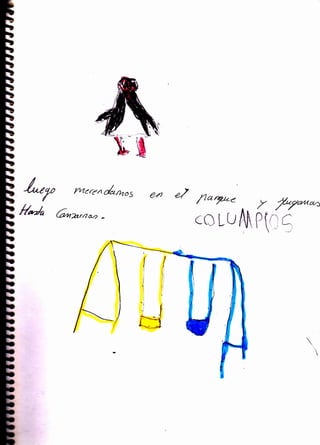 luego merendamos en el parque y jugamos
Hasta Cansarnos.
COLUMPIOS